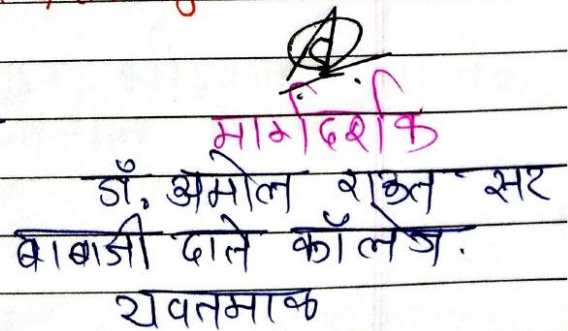 मार्गदर्शक
डॉ. अमोल राऊत सर
बाबाजी दाते कॉलेज.
यवतमाळ